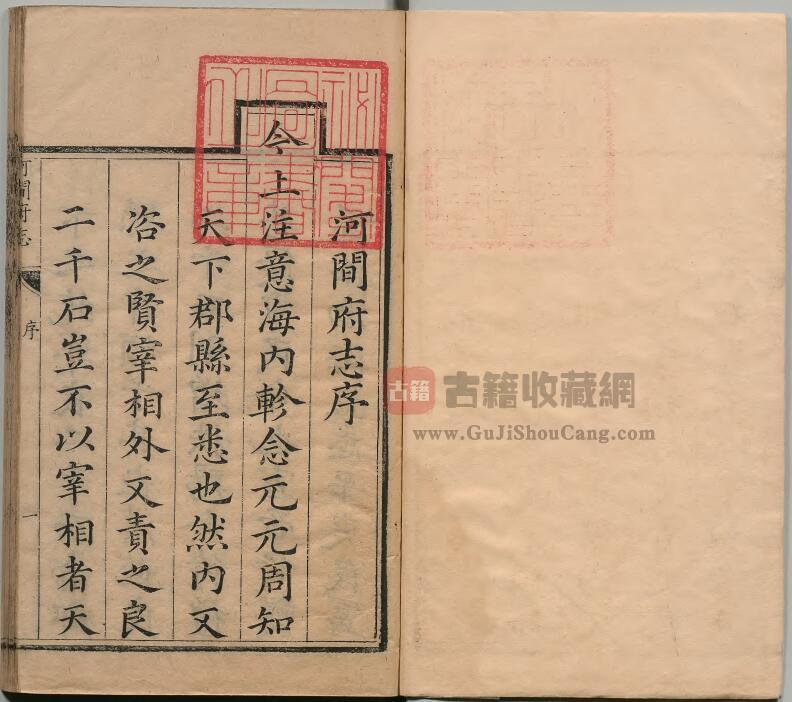 河間府志序
今上注意海内軫念元元周知
天下郡縣至悉也然内又
咨之賢宰相外又責之良
二千石豈不以宰相者天
河間府志
序
一
古籍
古籍收藏網
www.GuJiShouCang.com